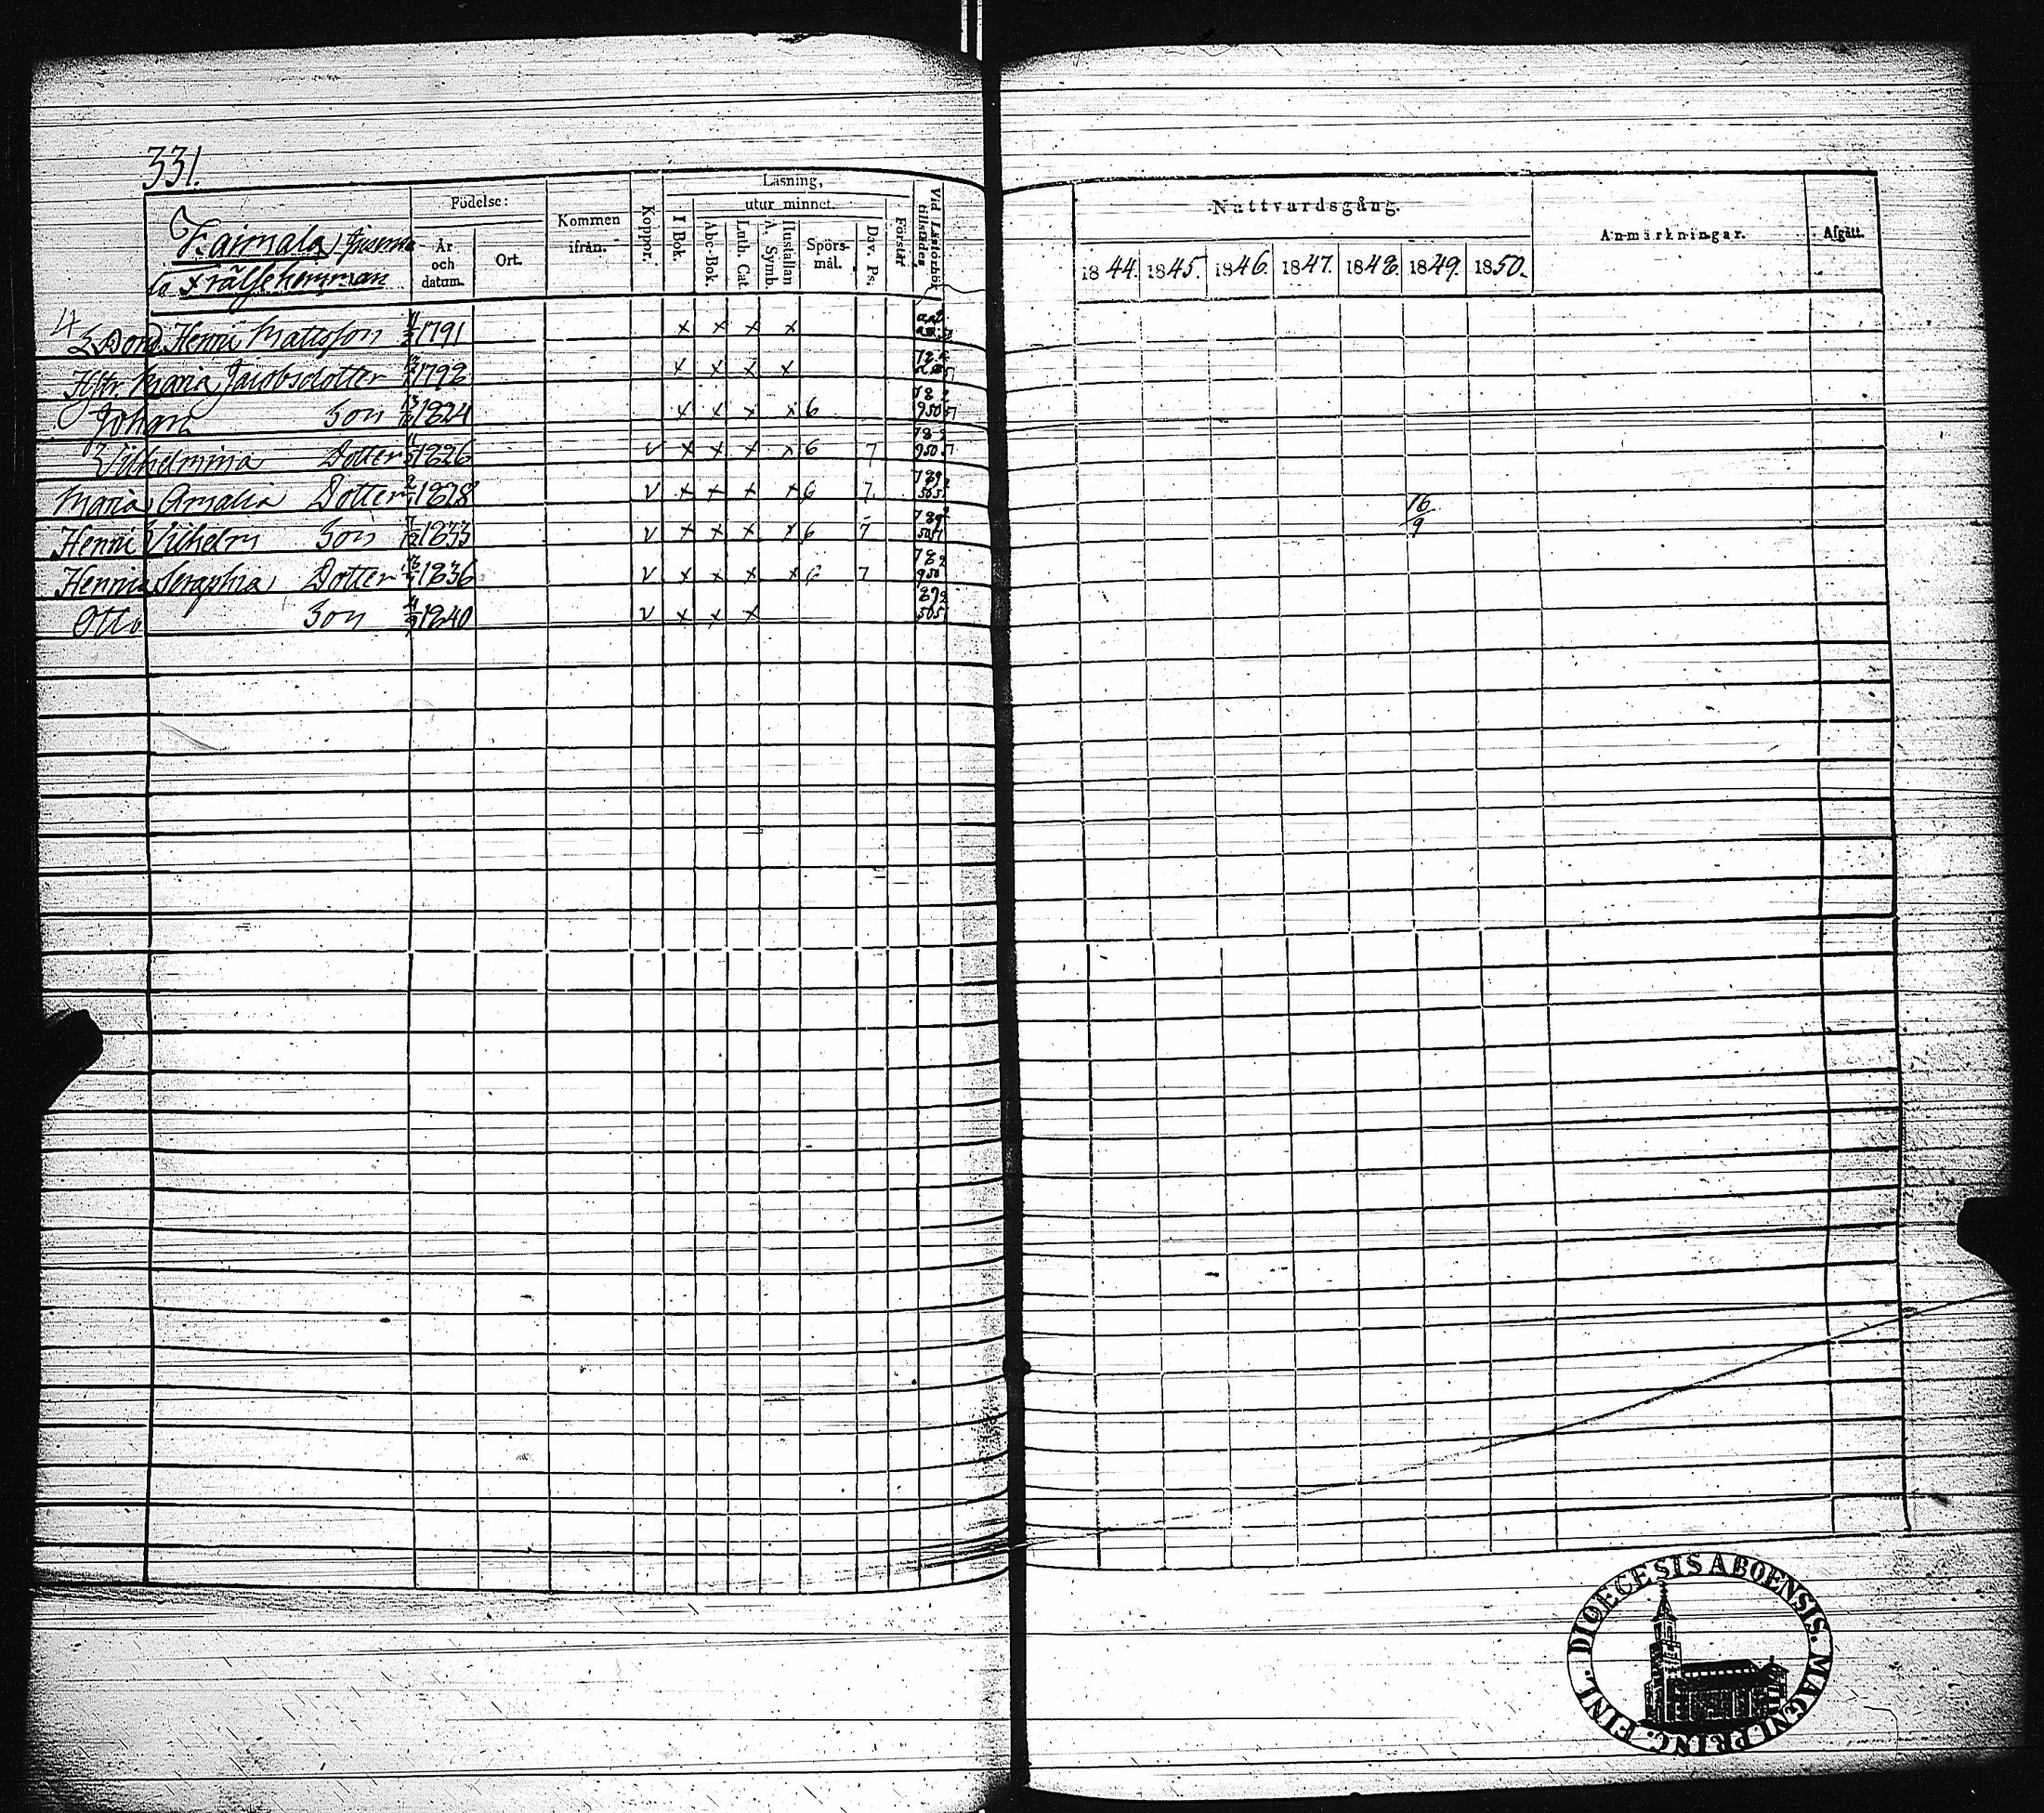 331.
Födelse:
År och datum.
Ort.
Kommen ifrån.
Koppor.
Läsning,
utur minnet.
I Bok.
Abc-Bok.
Luth. Cat.
Hustaflan A. Symb.
Spörs-mål.
Dav. Ps.
Förstår
Vid Läsförhör tillstädes
Nattvardsgång.
1844. 1845. 1846. 1847. 1848. 1849. 1850.
Anmärkningar.
Afgått.
Kaimala
Frälsehemman
4
Bond. Henric Mattsson 1791 x x x x
Hstr. Maria Jacobsdotter 1792 x x x x
Johan Son 1824 x x x x 6
Vilhelmina Dotter 1826 v x x x x 6 7
Maria Amalia Dotter 1828 v x x x x 6 7
Henric Vilhelm Son 1833 v x x x x 6 7 16/9
Henrica Seraphia Dotter 1836 v x x x x 6 7
Otto Son 4/9 1840 v x x x
DIOECESIS ABOENSIS. MAGNI PRINC. FINL.